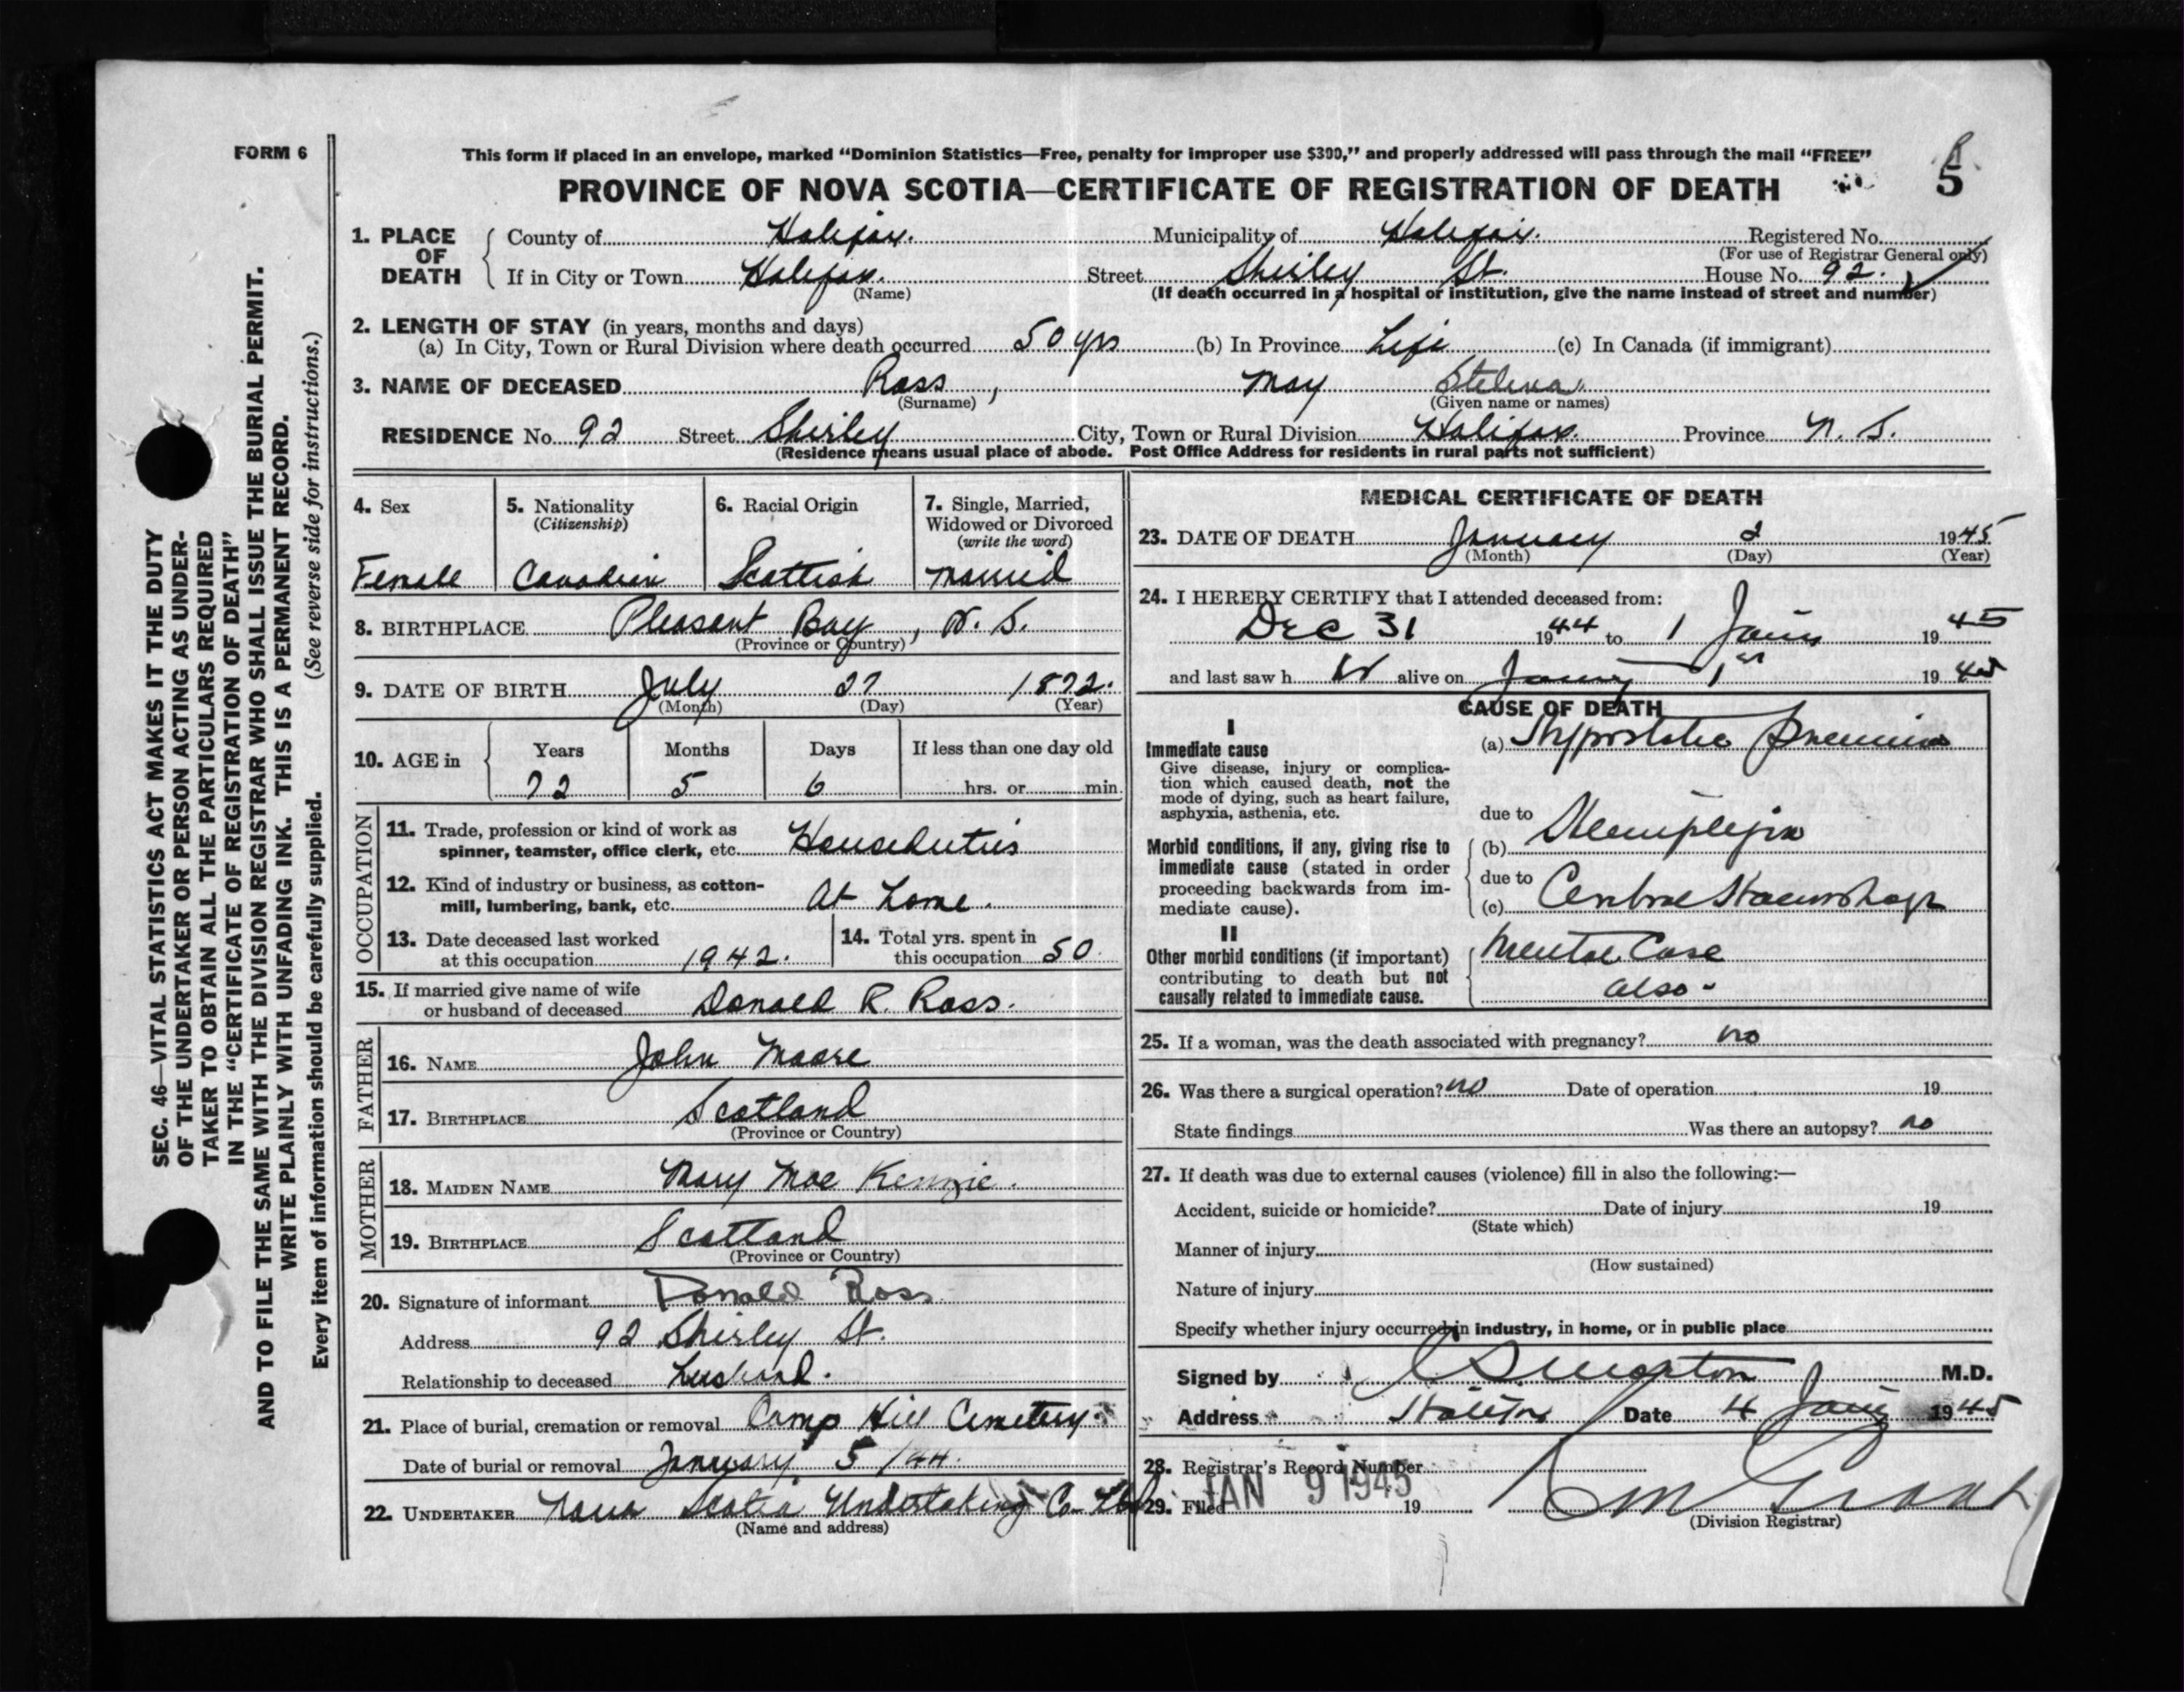 FORM 6
This form if placed in an envelope, marked "Dominion Statistics—Free, penalty for improper use $300," and properly addressed will pass through the mail "FREE"
PROVINCE OF NOVA SCOTIA—CERTIFICATE OF REGISTRATION OF DEATH
5
1. PLACE OF DEATH
County of Halifax. Municipality of Halifax. Registered No.
(For use of Registrar General only)
If in City or Town Halifax. Street Shirley St. House No. 92.
(Name) (If death occurred in a hospital or institution, give the name instead of street and number)
2. LENGTH OF STAY (in years, months and days)
(a) In City, Town or Rural Division where death occurred 50 yrs (b) In Province Life (c) In Canada (if immigrant)
3. NAME OF DECEASED Ross, May
(Surname) (Given name or names)
RESIDENCE No. 92 Street Shirley City, Town or Rural Division Halifax. Province N. S.
(Residence means usual place of abode. Post Office Address for residents in rural parts not sufficient)
SEC. 46—VITAL STATISTICS ACT MAKES IT THE DUTY
OF THE UNDERTAKER OR PERSON ACTING AS UNDER-
TAKER TO OBTAIN ALL THE PARTICULARS REQUIRED
IN THE "CERTIFICATE OF REGISTRATION OF DEATH"
AND TO FILE THE SAME WITH THE DIVISION REGISTRAR WHO SHALL ISSUE THE BURIAL PERMIT.
WRITE PLAINLY WITH UNFADING INK. THIS IS A PERMANENT RECORD.
Every item of information should be carefully supplied. (See reverse side for instructions.)
4. Sex
Female
5. Nationality
(Citizenship)
Canadian
6. Racial Origin
Scottish
7. Single, Married,
Widowed or Divorced
(write the word)
Married
8. BIRTHPLACE Pleasant Bay, N. S.
(Province or Country)
9. DATE OF BIRTH July 27 1872.
(Month) (Day) (Year)
10. AGE in Years Months Days If less than one day old
72 5 6 hrs. or min.
OCCUPATION
11. Trade, profession or kind of work as
spinner, teamster, office clerk, etc. Houseduties
12. Kind of industry or business, as cotton-
mill, lumbering, bank, etc. At Home.
13. Date deceased last worked
at this occupation 1942.
14. Total yrs. spent in
this occupation 50
15. If married give name of wife
or husband of deceased Donald R. Ross.
FATHER
16. NAME John Moore
17. BIRTHPLACE Scotland
(Province or Country)
MOTHER
18. MAIDEN NAME Mary Mac Kenzie.
19. BIRTHPLACE Scotland
(Province or Country)
20. Signature of informant Donald Ross
Address 92 Shirley St.
Relationship to deceased Husband.
21. Place of burial, cremation or removal Camp Hill Cemetery.
Date of burial or removal January 5 /44.
22. UNDERTAKER Nova Scotia Undertaking Co. Ltd
(Name and address)
MEDICAL CERTIFICATE OF DEATH
23. DATE OF DEATH January 2 1945
(Month) (Day) (Year)
24. I HEREBY CERTIFY that I attended deceased from:
Dec 31 1944 to 1 Jany 1945
and last saw h er alive on Jany 1st 1945
CAUSE OF DEATH
I
Immediate cause
Give disease, injury or complica-
tion which caused death, not the
mode of dying, such as heart failure,
asphyxia, asthenia, etc.
(a) Hypostatic Pneumonia
due to
Morbid conditions, if any, giving rise to
immediate cause (stated in order
proceeding backwards from im-
mediate cause).
(b) Hemiplegia
due to
(c) Cerebral Haemorhage
II
Other morbid conditions (if important)
contributing to death but not
causally related to immediate cause.
Mental Case
also
25. If a woman, was the death associated with pregnancy? no
26. Was there a surgical operation? no Date of operation 19
State findings Was there an autopsy? no
27. If death was due to external causes (violence) fill in also the following:—
Accident, suicide or homicide? Date of injury 19
(State which)
Manner of injury
(How sustained)
Nature of injury
Specify whether injury occurred in industry, in home, or in public place
Signed by Morton M.D.
Address Halifax Date 4 Jany 1945
28. Registrar's Record Number
29. Filed JAN 9 1945 19
(Division Registrar)